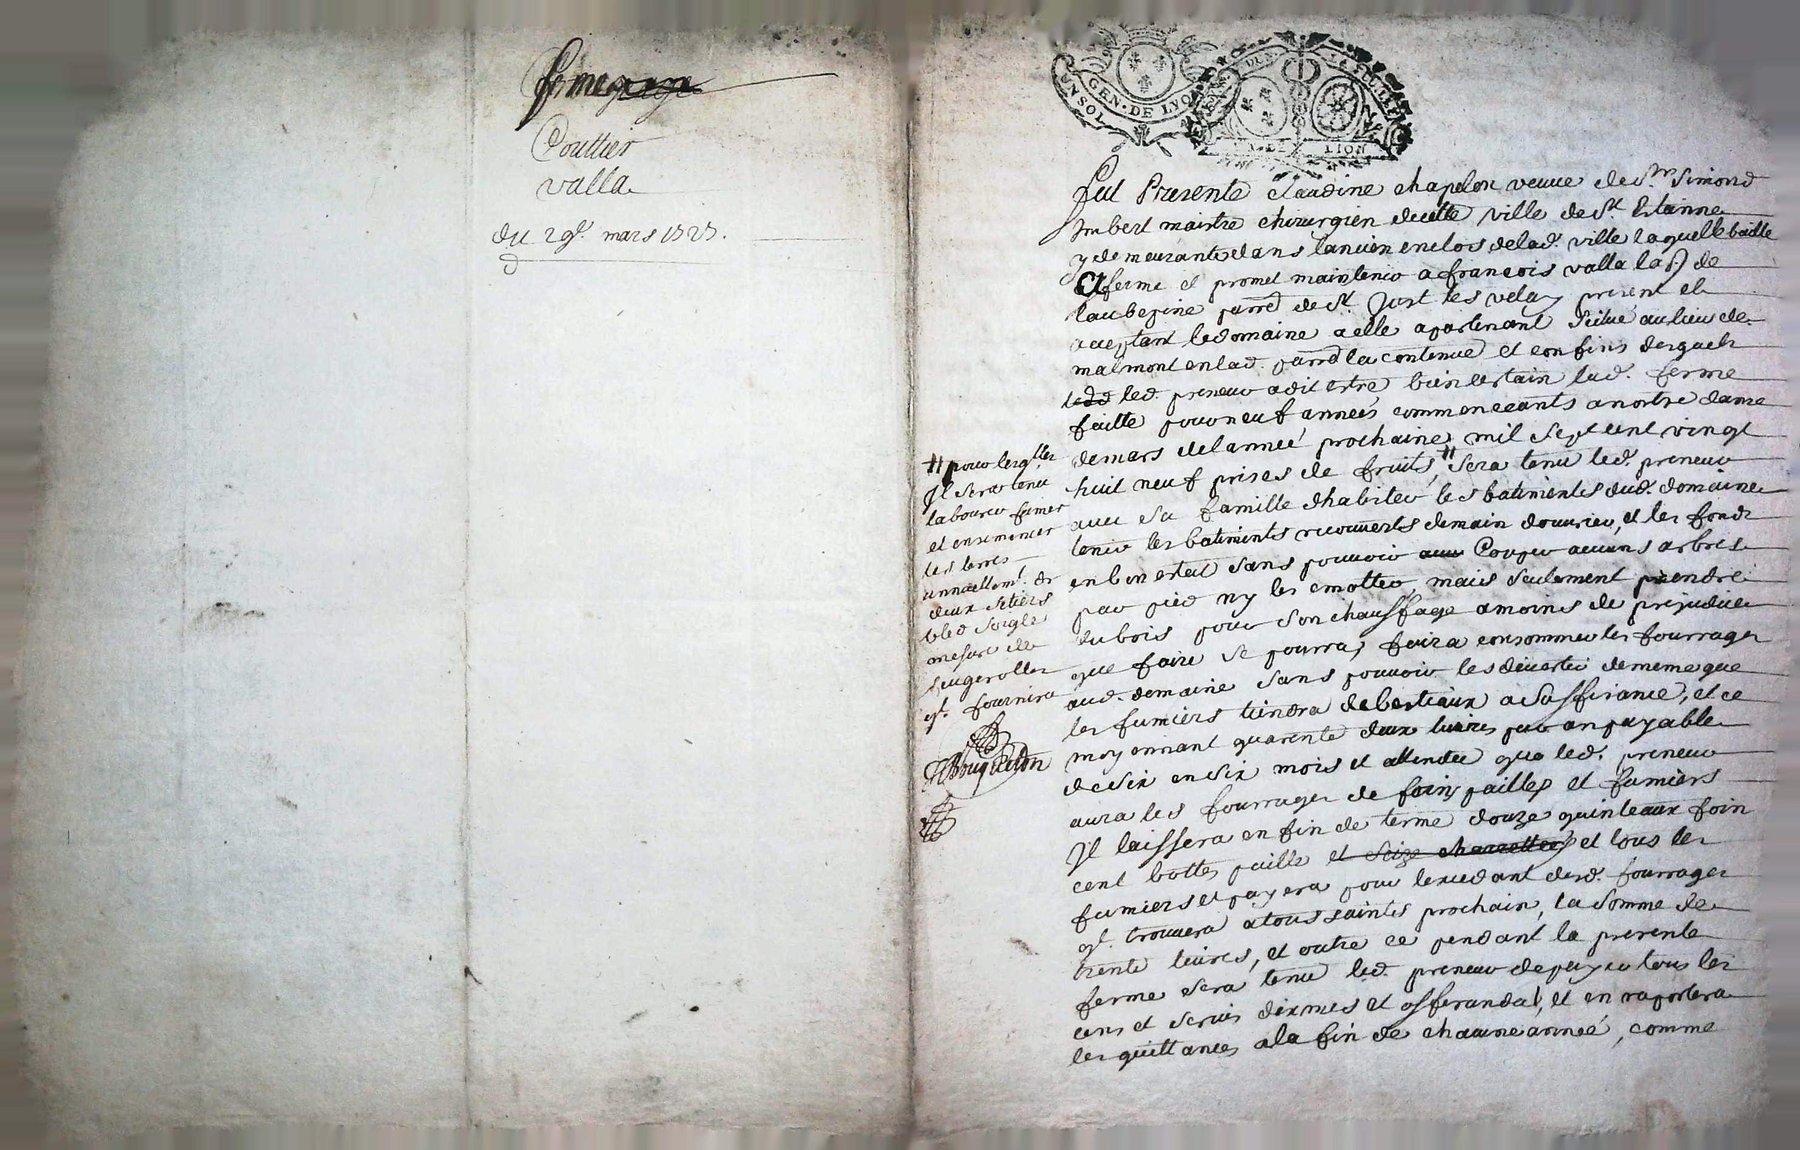 ferme
Couttier
valla
du 29e. mars 1727.
GEN. DE LYON
UN SOL
LION
Fut Presente claudine chapelon veuve de Sr. Simond
Imbert maistre chirurgien decette ville de St. Estienne
y demeurante dans lancien enclos delad. ville laquelle baille
A ferme et promet maintenir a francois valla lab. de
laubepine parr. de St. Just les velay present et
acceptant ledomaine aelle apartenant Scitué au lieu de
malmont enlad. parr. la contenue et confins desquels
led. preneur adit estre bien certain lad. ferme
faitte pour neuf années commenceants anostre dame
demars delannée prochaine mil Sept cent vingt
huit neuf prises de fruits, # Sera tenu led. preneur
avec Sa famille dhabiter les batiments dud. domaine
tenir les batiments recouverts demain douvrier, et les fonds
en bon estat sans pouvoir Couper aucuns arbres
par pied ny les emotter, mais Seulement prendre
du bois pour Son chauffage amoins de prejudice
que faire Se pourra, faira consommer les fourrages
aud. domaine Sans pouvoir les divertir demême que
les fumiers tiendra debestiaux a Suffisance, et ce
moyennant quarente deux livres par an payable
desix ensix mois et attendu que led. preneur
aura les fourrages de foins pailles et fumiers
Jl laissera en fin de terme douze quinteaux foin
cent bottes paille et Seize charrettes et tous les
fumiers et payera pour lexcedant desd. fourrages
ql. trouvera atoussaints prochain, la Somme de
trente livres, et outre ce pendant la presente
ferme sera tenu led. preneur depayer tous les
cens et servis dixmes et offerandes, et en raportera
les quittances ala fin de chacune année, comme
# pour lesqlles
Jl Sera tenu
labourer fumer
et ensemencer
les terres
annuellemt. de
deux Setiers
bled Seigle
mesure de
feugerolles
ql. fournira